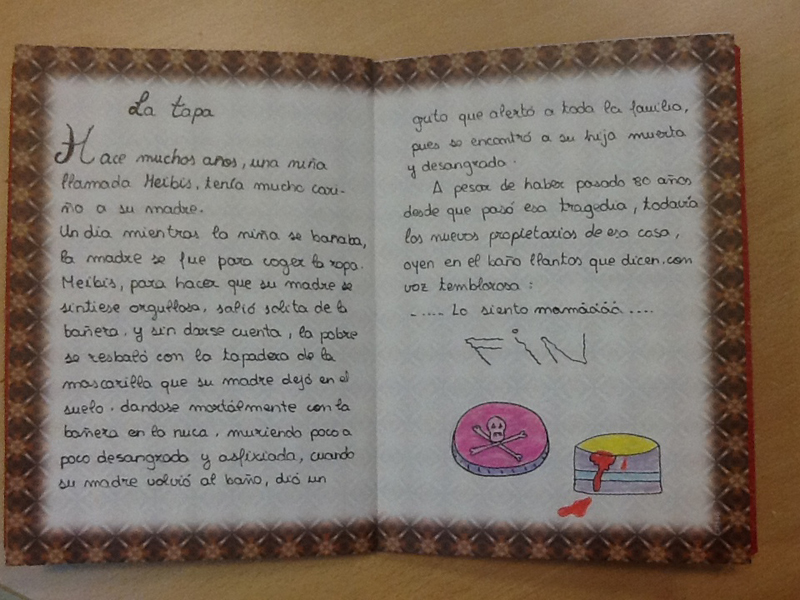 La tapa
Hace muchos años, una niña
llamada Meibis, tenía mucho cari-
ño a su madre.
Un día mientras la niña se bañaba,
la madre se fue para coger la ropa.
Meibis, para hacer que su madre se
sintiese orgullosa, salió solita de la
bañera, y sin darse cuenta, la pobre
se resbaló con la tapadera de la
mascarilla que su madre dejó en el
suelo. dandose mortálmente con la
bañera en la nuca, muriendo poco a
poco desangrada y asfixiada, cuando
su madre volvió al baño, dió un
grito que alertó a toda la familia,
pues se encontró a su hija muerta
y desangrada.
A pesar de haber pasado 80 años
desde que pasó esa tragedia, todavía
los nuevos propietarios de esa casa,
oyen en el baño llantos que dicen, con
voz temblorosa:
- .... Lo siento mamáááá ....
FiN